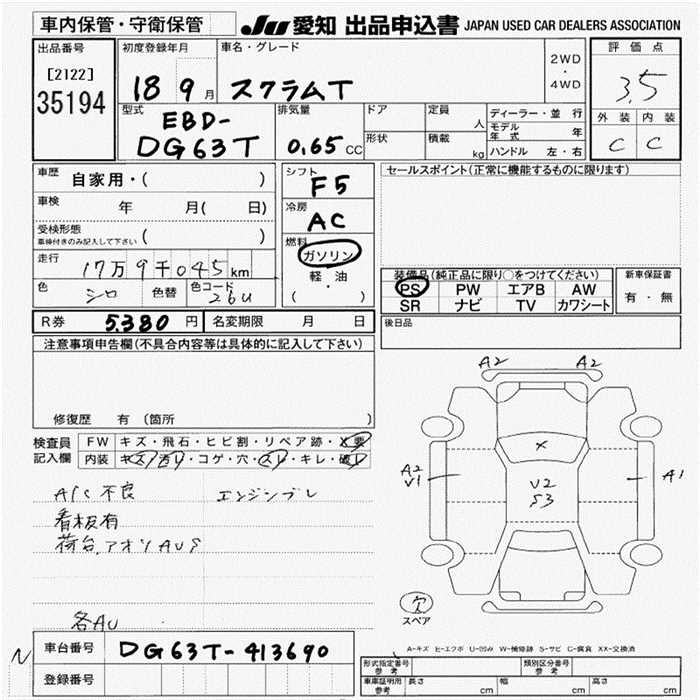 車内保管・守衛保管
JU 愛知 出品申込書 JAPAN USED CAR DEALERS ASSOCIATION
出品番号
[2122]
35194
初度登録年月
18 9 月
車名・グレード
スクラムT
2WD
・
4WD
評価点
3.5
外装 内装
C C
型式
EBD-
DG63T
排気量
0.65 CC
ドア
形状
定員
人
積載
kg
ディーラー・並行
モデル年式 年
ハンドル 左・右
車歴
自家用・( )
車検
年 月( 日)
受検形態
車検付きのみ記入して下さい ( )
走行
17万9千045km
色
シロ
色替
色コード
26U
シフト
F5
冷房
AC
燃料
ガソリン
軽・油
( )
セールスポイント(正常に機能するものに限ります)
装備品(純正品に限り○をつけてください)
PS PW エアB AW
SR ナビ TV カワシート
新車保証書
有・無
R券 5.380 円
名変期限 月 日
後日品
注意事項申告欄(不具合内容等は具体的に記入して下さい)
修復歴 有 (箇所 )
検査員
記入欄
FW キズ・飛石・ヒビ割・リペア跡・X要
内装 キズ・汚り・コゲ・穴・スレ・キレ・破レ
A/C不良 エンジンブレ
看板有
荷台、アオリAUS
各AU
A2 A2
X
A2
V1
V2
S3
A1
欠
スペア
A-キズ E-エクボ U-凹み W-補修跡 S-サビ C-腐食 XX-交換済
N
車台番号 DG63T-413690
登録番号
形式指定番号
参考
類別区分番号
参考
車庫証明用
参考
長さ cm
幅 cm
高さ cm